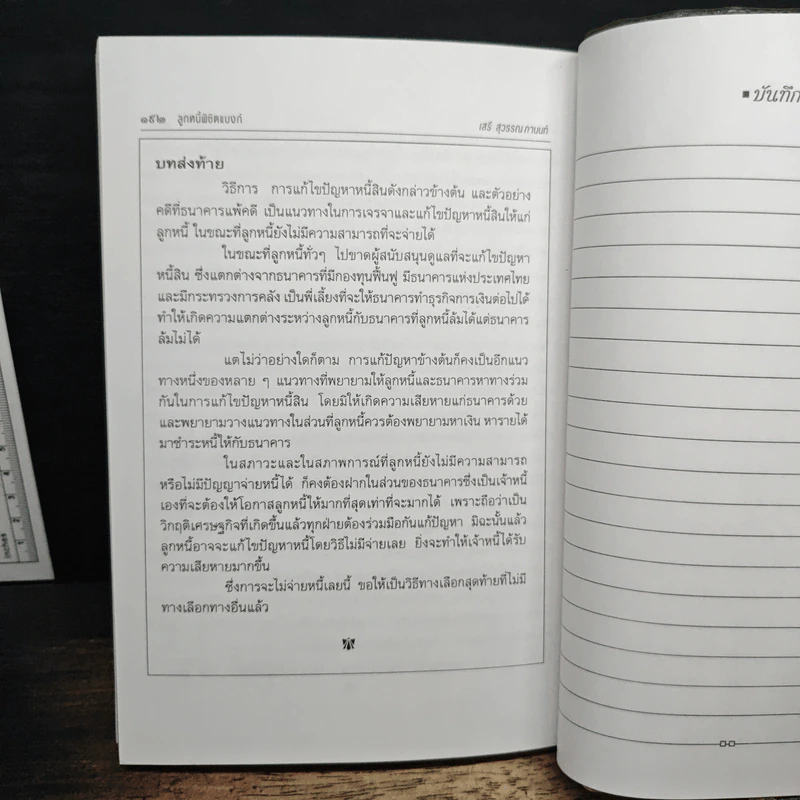 ๑๙๒ ลูกหนี้พิชิตแบงก์
เสรี สุวรรณภานนท์
บทส่งท้าย
วิธีการ การแก้ไขปัญหาหนี้สินดังกล่าวข้างต้น และตัวอย่าง
คดีที่ธนาคารแพ้คดี เป็นแนวทางในการเจรจาและแก้ไขปัญหาหนี้สินให้แก่
ลูกหนี้ ในขณะที่ลูกหนี้ยังไม่มีความสามารถที่จะจ่ายได้
ในขณะที่ลูกหนี้ทั่วๆ ไปขาดผู้สนับสนุนดูแลที่จะแก้ไขปัญหา
หนี้สิน ซึ่งแตกต่างจากธนาคารที่มีกองทุนฟื้นฟู มีธนาคารแห่งประเทศไทย
และมีกระทรวงการคลัง เป็นพี่เลี้ยงที่จะให้ธนาคารทำธุรกิจการเงินต่อไปได้
ทำให้เกิดความแตกต่างระหว่างลูกหนี้กับธนาคารที่ลูกหนี้ล้มได้แต่ธนาคาร
ล้มไม่ได้
แต่ไม่ว่าอย่างใดก็ตาม การแก้ปัญหาข้างต้นก็คงเป็นอีกแนว
ทางหนึ่งของหลาย ๆ แนวทางที่พยายามให้ลูกหนี้และธนาคารหาทางร่วม
กันในการแก้ไขปัญหาหนี้สิน โดยมิให้เกิดความเสียหายแก่ธนาคารด้วย
และพยายามวางแนวทางในส่วนที่ลูกหนี้ควรต้องพยายามหาเงิน หารายได้
มาชำระหนี้ให้กับธนาคาร
ในสภาวะและในสภาพการณ์ที่ลูกหนี้ยังไม่มีความสามารถ
หรือไม่มีปัญญาจ่ายหนี้ได้ ก็คงต้องฝากในส่วนของธนาคารซึ่งเป็นเจ้าหนี้
เองที่จะต้องให้โอกาสลูกหนี้ให้มากที่สุดเท่าที่จะมากได้ เพราะถือว่าเป็น
วิกฤติเศรษฐกิจที่เกิดขึ้นแล้วทุกฝ่ายต้องร่วมมือกันแก้ปัญหา มิฉะนั้นแล้ว
ลูกหนี้อาจจะแก้ไขปัญหาหนี้โดยวิธีไม่มีจ่ายเลย ยิ่งจะทำให้เจ้าหนี้ได้รับ
ความเสียหายมากขึ้น
ซึ่งการจะไม่จ่ายหนี้เลยนี้ ขอให้เป็นวิธีทางเลือกสุดท้ายที่ไม่มี
ทางเลือกทางอื่นแล้ว
บันทึก
inches
1
2
3
4
5